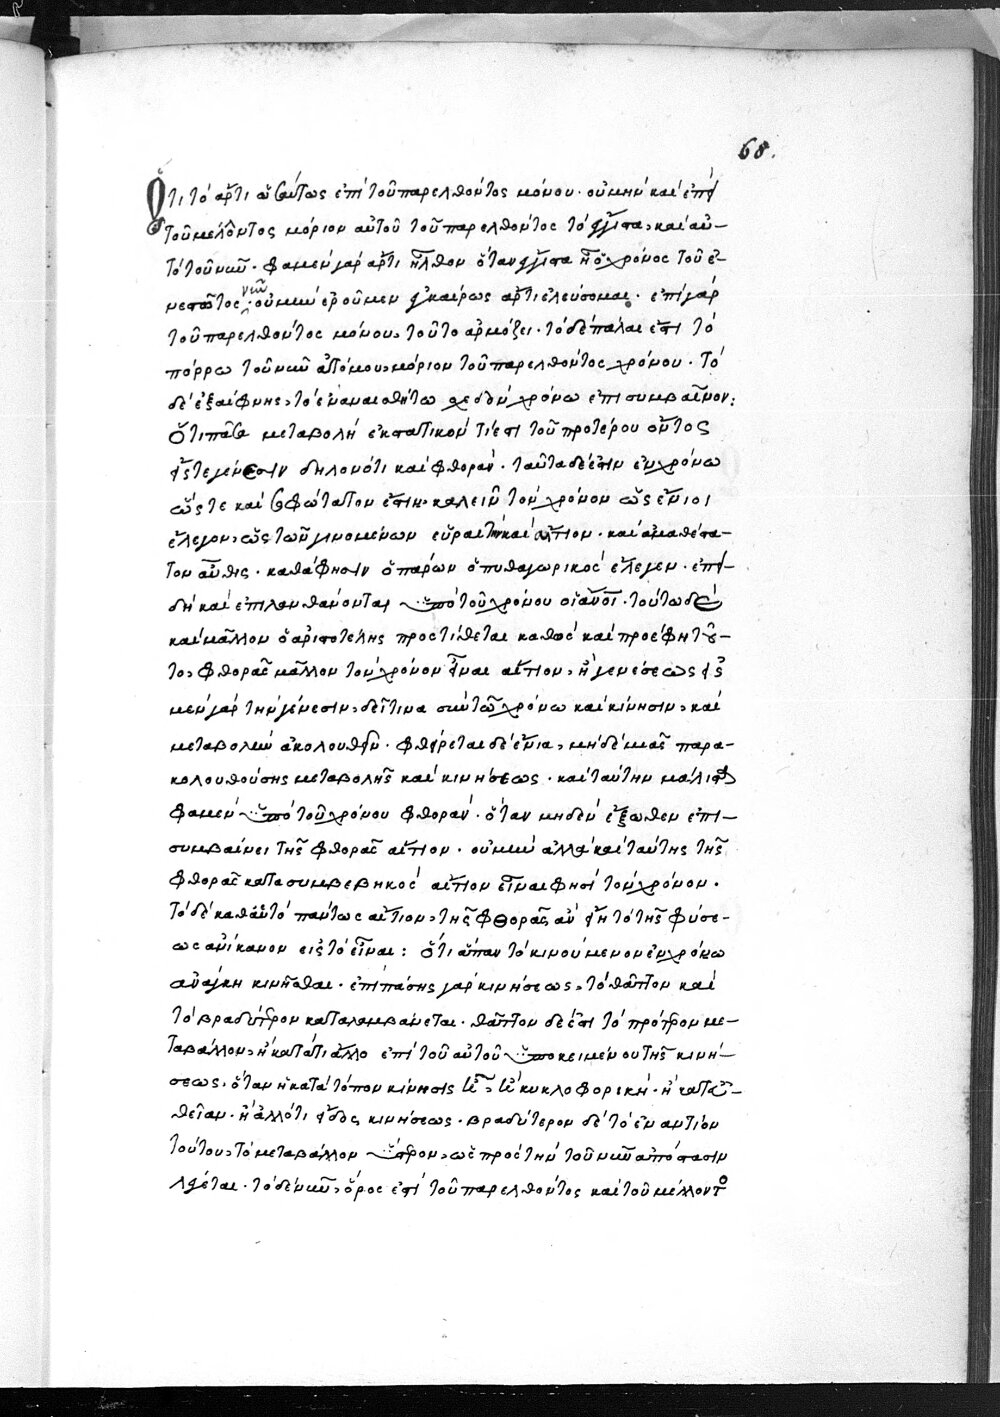 68.
Ὅτι τὸ ἄρτι ὡσαύτως ἐπὶ τοῦ παρελθόντος μόνου· οὐ μὴν καὶ ἐπὶ
τοῦ μέλλοντος μόριον αὐτοῦ τοῦ παρελθόντος τὸ ἔγγιστα, καὶ αὐ-
τὸ τοῦ νῦν· φαμὲν γὰρ ἄρτι ἦλθον ὅταν ἔγγιστα ἦ ὁ χρόνος τοῦ ἐ-
νεστῶτος νῦν· οὐ μὴν ἐροῦμεν εὐκαίρως ἄρτι ἐλεύσομαι· ἐπὶ γὰρ
τοῦ παρελθόντος μόνου, τοῦτο ἁρμόζει· τὸ δὲ πάλαι ἐστὶ τὸ
πόρρω τοῦ νῦν ἀτόμου, μόριον τοῦ παρελθόντος χρόνου· τὸ
δὲ ἐξαίφνης, τὸ ἐν ἀναισθήτω σχεδὸν χρόνω ἐπισυμβαῖνον:
Ὅτι πᾶσα μεταβολὴ ἐκστατικόν τί ἐστι τοῦ προτέρου ὄντος
εἴς τε γένεσιν δηλονότι καὶ φθοράν· ταῦτα δέ ἐστιν ἐν χρόνω
ὥς τε καὶ σοφώτατον ἔστιν, καλεῖν τὸν χρόνον ὥς ἔνιοι
ἔλεγον, ὡς τῶν γινομένων εὑρετὴν καὶ αἴτιον· καὶ ἀμαθέστα-
τον αὖθις· καθά φησιν ὁ παρὼν ὁ πυθαγωρικὸς ἔλεγεν· ἐπει-
δὴ καὶ ἐπιλανθάνονται ὑπὸ τοῦ χρόνου οἱ ἄνοι· τούτω δὲ
καὶ μᾶλλον ὁ ἀριστοτέλης προστίθεται καθὼς καὶ προέφη τοῦ-
το, φθορᾶς μᾶλλον τὸν χρόνον εἶναι αἴτιον, ἢ γενέσεως εἰς
μὲν γὰρ τὴν γένεσιν, δεῖ τινα σὺν τῶ χρόνω καὶ κίνησιν, καὶ
μεταβολὴν ἀκολουθεῖν· φθείρεται δὲ ἔνια, μηδὲ μιᾶς παρα-
κολουθούσης μεταβολῆς καὶ κινήσεως· καὶ ταύτην μάλιστα
φαμὲν ὑπὸ τοῦ χρόνου φθοράν· ὅταν μηδὲν ἔξωθεν ἐπι-
συμβαίνει τῆς φθορᾶς αἴτιον· οὐ μὴν ἀλλὰ καὶ ταύτης τῆς
φθορᾶς κατασυμβεβηκὸς αἴτιον εἶναι φησὶ τὸν χρόνον·
τὸ δὲ καθαυτὸ πάντως αἴτιον, τῆς φθορᾶς ἂν εἴη τὸ τῆς φύσε-
ως ἀνίκανον εἰς τὸ εἶναι: Ὅτι ἅπαν τὸ κινούμενον ἐν χρόνω
ἀνάγκη κινεῖσθαι· ἐπὶ πάσης γὰρ κινήσεως, τὸ θᾶττον καὶ
τὸ βραδύτερον καταλαμβάνεται· θᾶττον δέ ἐστι τὸ πρότερον με-
ταβάλλον, ἢ κατά τι ἄλλο ἐπὶ τοῦ αὐτοῦ ὑποκειμένου τῆς κινή-
σεως· ὅταν ἡ κατὰ τόπον κίνησις ἦ, ἢ κυκλοφορικὴ· ἢ κατ' εὐ-
θεῖαν· ἢ ἄλλό τι εἶδος κινήσεως· βραδύτερον δὲ τὸ ἐναντίον
τούτου, τὸ μεταβάλλον ὕστερον, ὡς πρὸς τὴν τοῦ νῦν ἀπόστασιν
λέγεται· τὸ δὲ νῦν, ὅρος ἐστὶ τοῦ παρελθόντος καὶ τοῦ μέλλοντος